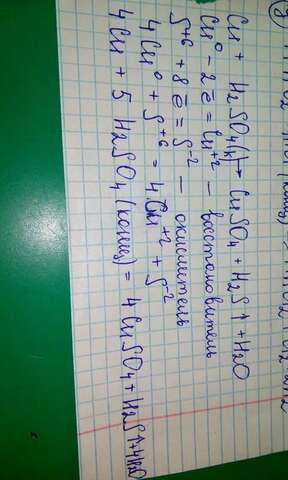 Cu + H2SO4(к) = CuSO4 + H2S↑ + H2O
Cu⁰ - 2ē = Cu⁺² — восстановитель
S⁺⁶ + 8ē = S⁻² — окислитель
4Cu⁰ + S⁺⁶ = 4Cu⁺² + S⁻²
4Cu + 5 H2SO4 (конц) = 4CuSO4 + H2S↑ + 4H2O